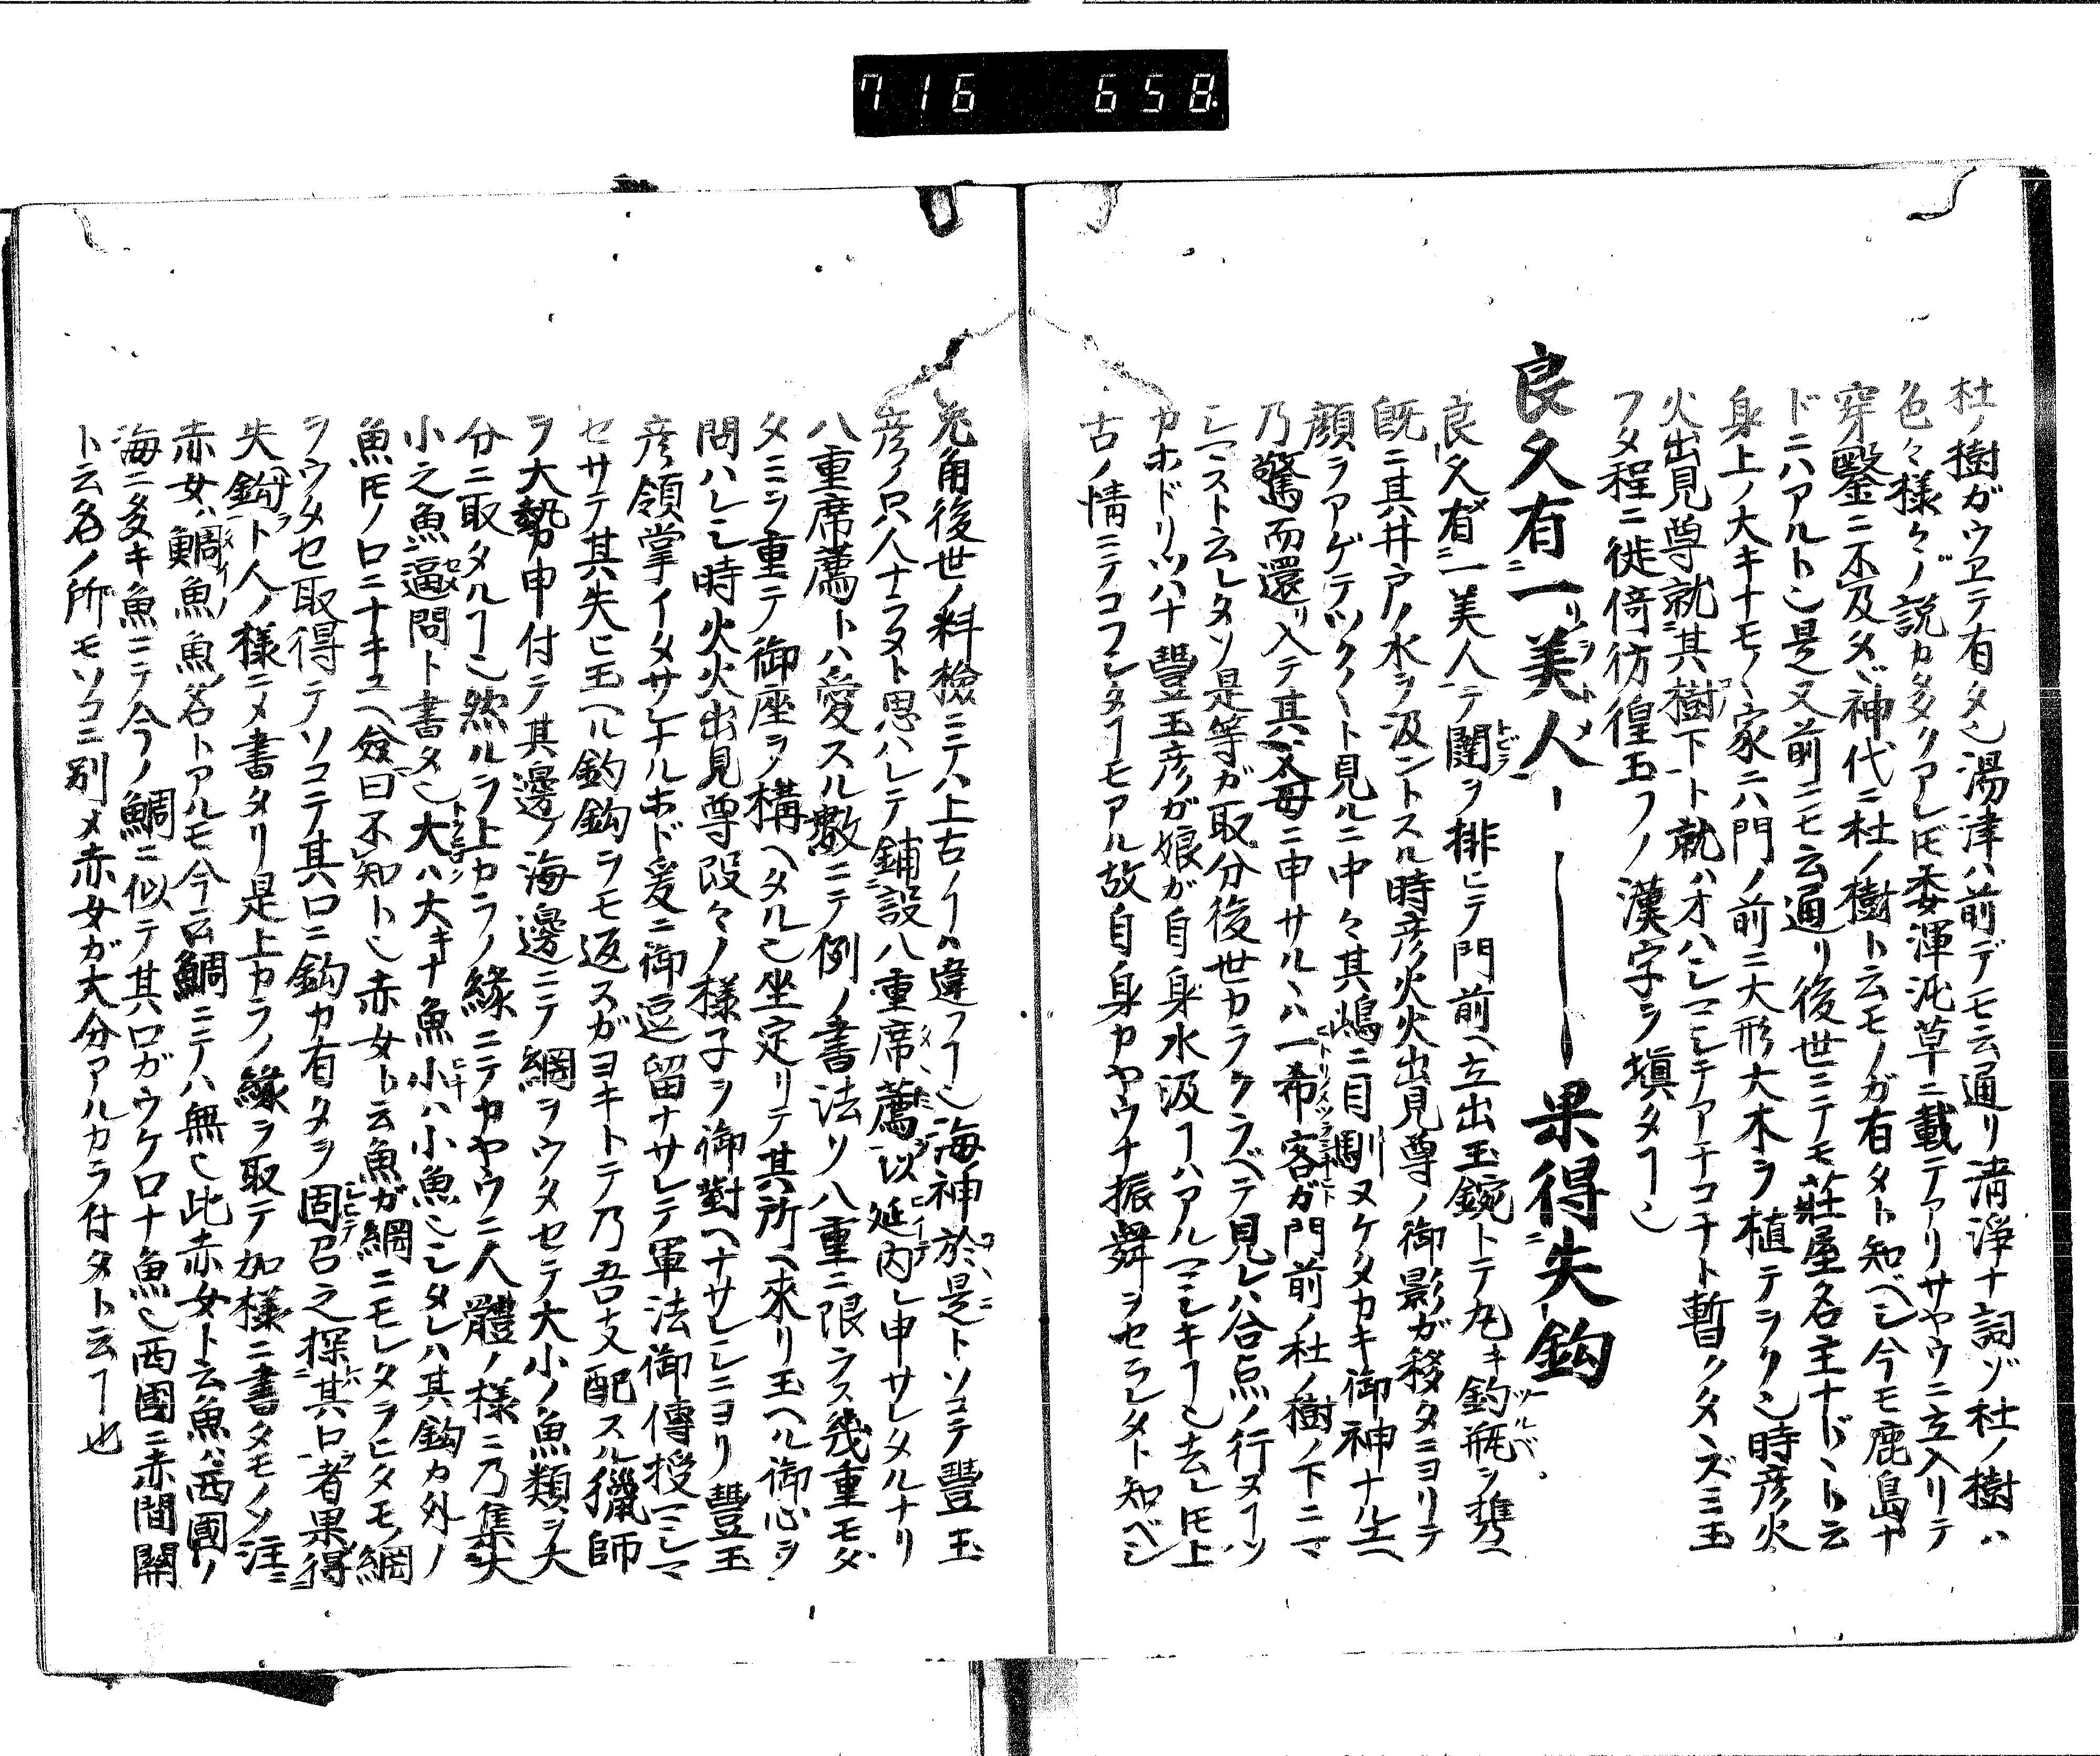 716 658
杜ノ樹ガウヱテ有タ也湯津ハ前デモ云通リ清浄ナ詞ゾ杜ノ樹ハ
色々様々ノ説カ多クアレ𪜈委渾沌草ニ載テアリサヤウニ立入リテ
穿鑿ニ不及タヾ神代ニ杜ノ樹ト云モノガ有タト知ベシ今モ鹿島ナ
ドニハアルト也是又前ニモ云通リ後世ニテモ荘屋名主ナドヽト云
身上ノ大キナモノヽ家ニハ門ノ前ニ大形大木ヲ植テヲク也時彦火
火出見尊就其樹下ト就ハオハシマシテアチコチト暫クタヽズミ玉
フタ程ニ徙倚彷徨玉フノ漢字ヲ塡タヿ也
良久有一美人ーー果得失鈎
良久有一美人テ闥ヲ排ヒテ門前ヘ立出玉鋺トテ丸キ釣瓶ヲ携ヘ
既ニ其井戸ノ水ヲ汲ントスル時彦火火出見尊ノ御影ガ移タニヨリテ
顔ヲアゲテツク〱ト見ルニ中々其嶋ニ目馴ヌケタカキ御神ナルユヘ
乃驚而還リ入テ其父母ニ申サルヽハ一希客ガ門前ノ杜ノ樹ノ下ニマ
シマスト云レタソ是等ガ取分後世カラクラベテ見レハ合点ノ行ヌヿソ
カホドリツハナ豊玉彦ガ娘ガ自身水汲ヿハアルマシキヿ也去レ𪜈上
古ノ情ニテコフシタヿモアル故自身カヤウナ振舞ヲセラレタト知ベシ
兎角後世ノ料檢ニテハ上古ノヿハ違フヿ也海神於是トソコテ豊玉
彦ノ只人ナラヌト思ハレテ鋪設八重席薦以延内レ申サレタルナリ
八重席薦トハ愛スル敷ニテ例ノ書法ソ八重ニ限ラス幾重モタ
タミシ重テ御座ヲ構ヘタル也坐定リテ其所ヘ來リ玉ヘル御心ヲ
問ハレシ時火火出見尊段々ノ様子ヲ御對ヘナサレシニヨリ豊玉
彦領掌イタサレナルホド爰ニ御逗留ナサレテ軍法御傳授マシマ
セサテ其失ヒ玉ヘル釣鈎ヲモ返スガヨキトテ乃吾支配スル獵師
ヲ大勢申付テ其邊ノ海邊ニテ網ヲウタセテ大小ノ魚類ヲ大
分ニ取タルヿ也然ルヲ上カラノ緣ニテカヤウニ人體ノ様ニ乃集大
小之魚逼問ト書タ也大ハ大キナ魚小ハ小魚也シタレハ其鈎カ外ノ
魚𪜈ノ口ニナキユヘ僉曰不知ト也赤女ト云魚ガ網ニモレタラヒタモノ網
ヲウタセ取得テソコテ其口ニ鈎カ有タヲ固召之探其口者果得
失鈎ト人ノ様ニメ書タリ是上カラノ緣ヲ取テ加様ニ書タモノタ注ニ
赤女ハ鯛魚魚名トアルモ今云鯛ニテハ無也此赤女ト云魚ハ西國ノ
海ニ多キ魚ニテ今ノ鯛ニ似テ其口ガウケロナ魚也西國ニ赤間關
ト云名ノ所モソコニ別メ赤女ガ大分アルカラ付タト云ヿ也